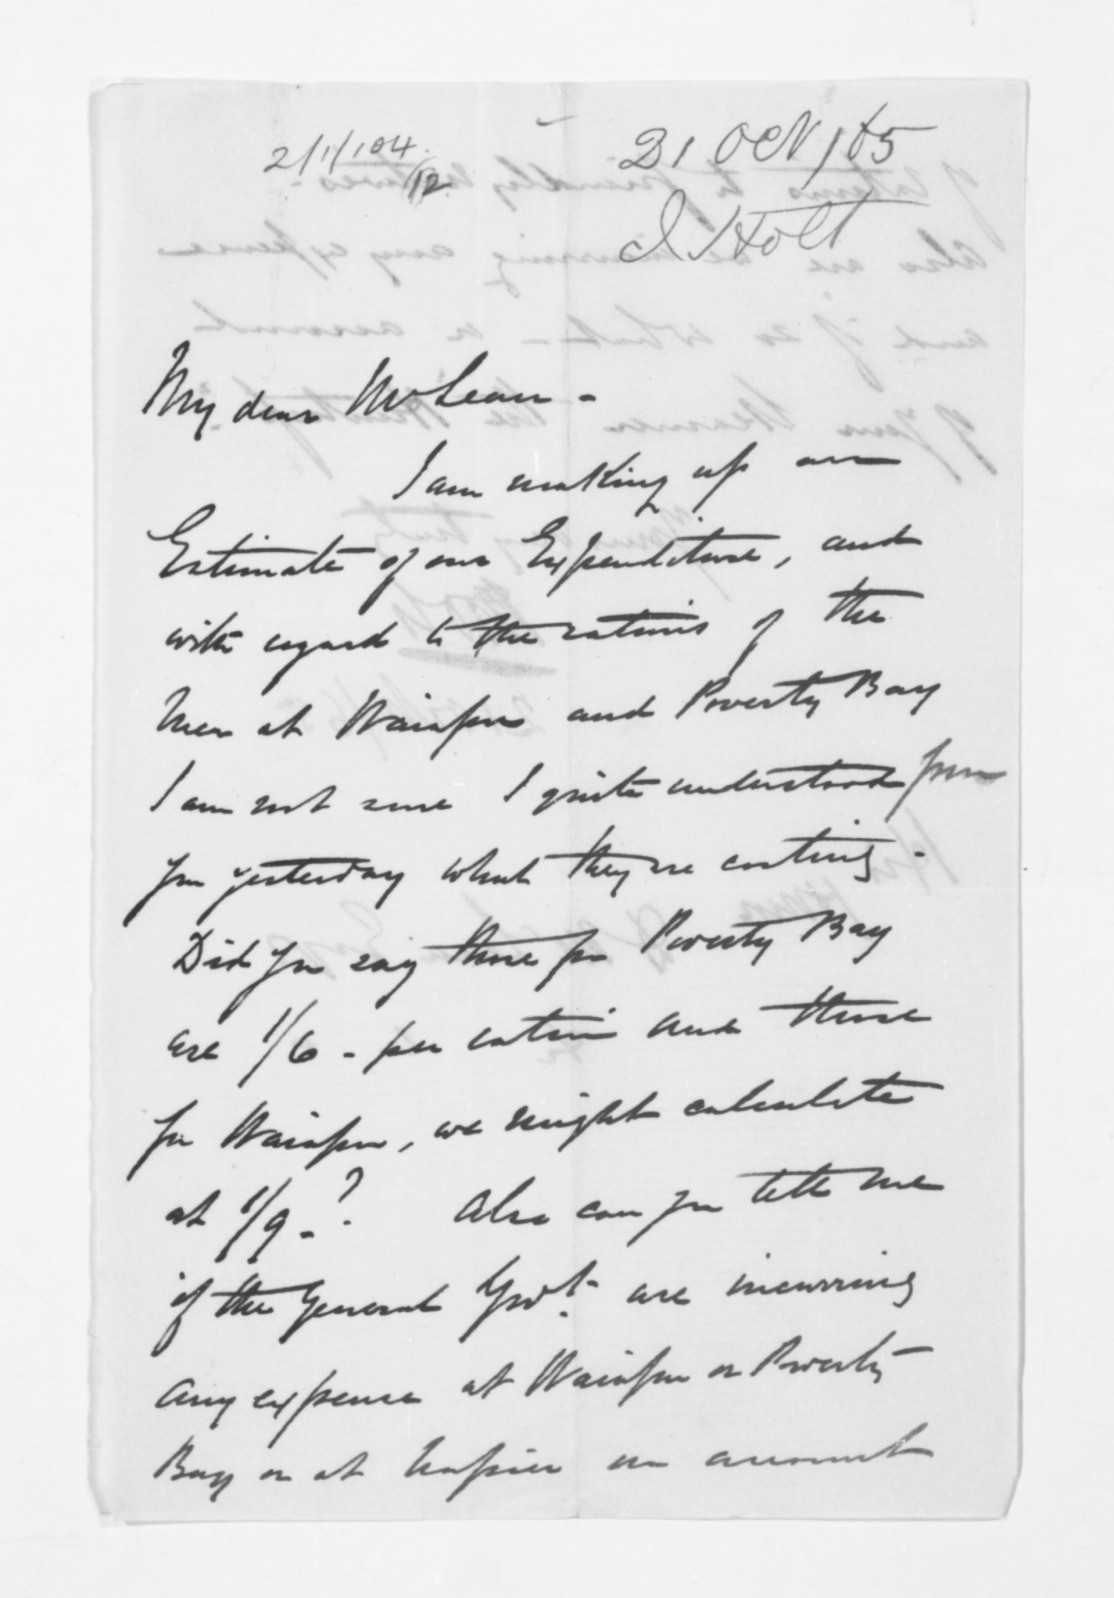 2/1/104/12
21 Oct/65
J. Holt
My dear McLean -
I am making up an
Estimate of our Expenditure, and
with regard to the rations of the
Men at Waiapu and Poverty Bay
I am not sure I quite understood from
you yesterday what they are costing -
Did you say those for Poverty Bay
are 1/6 - per ration and those
for Waiapu, we might calculate
at 1/9 - ? Also can you tell me
if the General Govt. are incurring
any expense at Waiapu or Poverty
Bay or at Napier on account